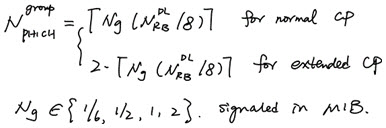 N_PHICH^group = { ⌈Ng (N_RB^DL /8)⌉ for normal CP
2·⌈Ng (N_RB^DL /8)⌉ for extended CP
Ng ∈ {1/6, 1/2, 1, 2}. signaled in MIB.